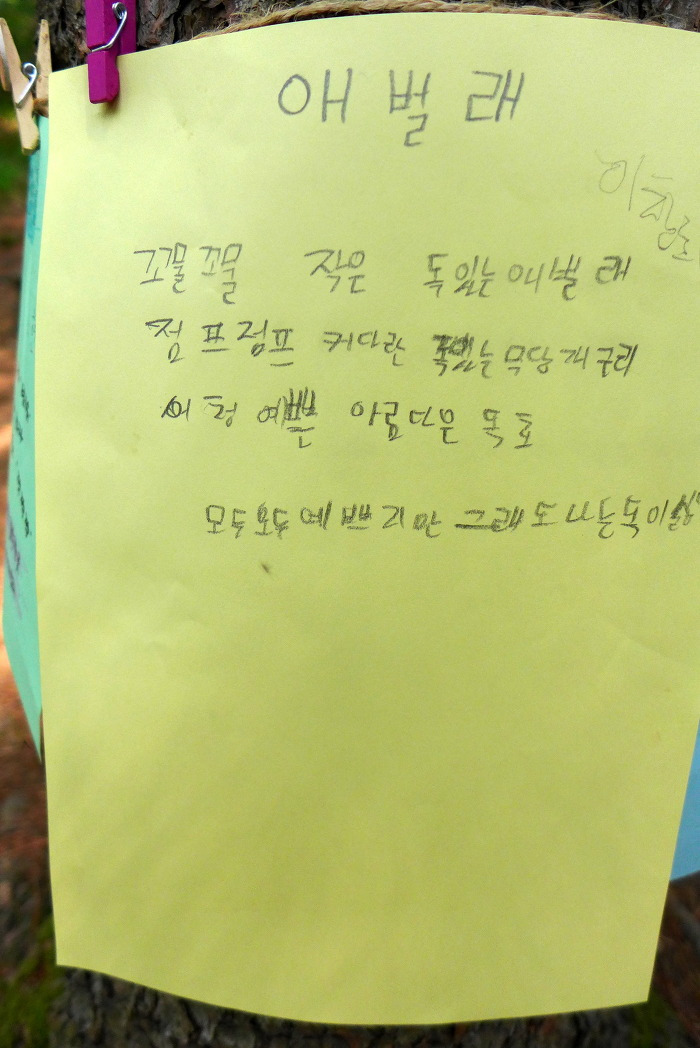 애벌래
꼬물꼬물 작은 독있는애벌래
점프점프 커다란 독있는무당개구리
예쁜 아름다운 독
모두모두예쁘지만 그래도나는독이싫